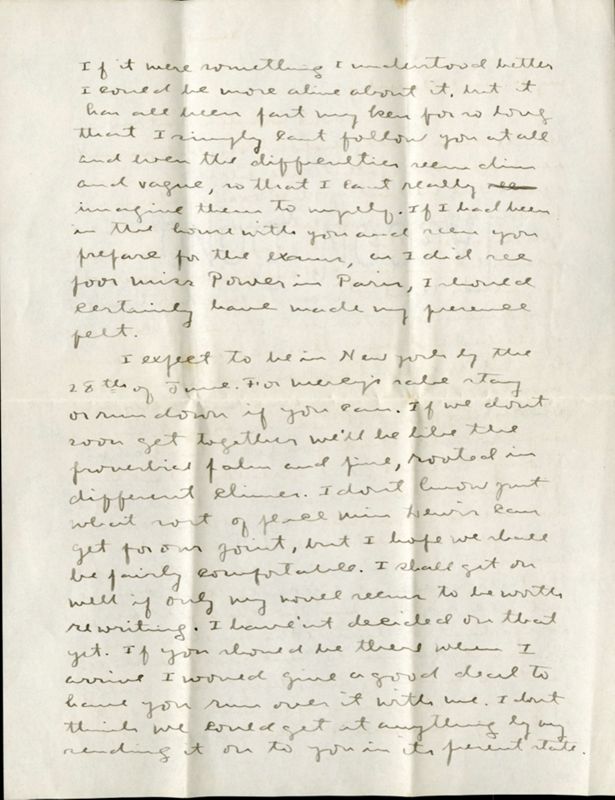 If it were something I understood better
I could be more alive about it, but it
has all been past my ken for so long
that I simply cant follow you at all
and even the difficulties seem dim
and vague, so that I cant really
imagine them to myself. If I had been
in the house with you and seen you
prepare for the exams, as I did see
poor Miss Power in Paris, I should
certainly have made my presence
felt.
I expect to be in New York by the
28th of June. For mercy's sake stay
or run down if you can. If we dont
soon get together we'll be like the
proverbial palm and pine, rooted in
different climes. I dont know just
what sort of place Miss Lewis can
get for our joint, but I hope we shall
be fairly comfortable. I shall get on
well if only my novel seems to be worth
rewriting. I have'nt decided on that
yet. If you should be there when I
arrive I would give a good deal to
have you run over it with me. I dont
think we could get at anything by my
sending it on to you in its present state.